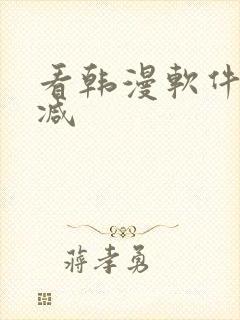 看韩漫軟件
减
蒋孝勇